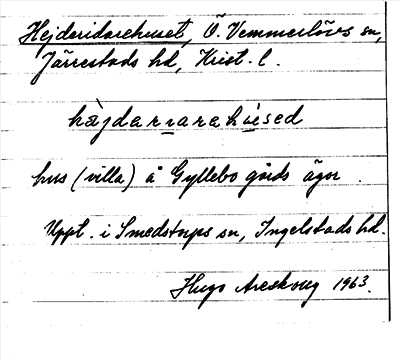 Hejderidarehuset, Ö. Vemmerlövs sn,
Järrestads hd, Krist. l.
hàjdarɩarahúsed
hus (villa) å Gyllebo gårds ägor.
Uppt. i Smedstorps sn, Ingelstads hd.
Hugo Areskoug 1963.